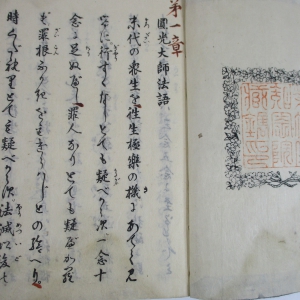 知恩院
第一章
圓光大師法語
末代の衆生を往生極樂の機にあてゝ見
るに行すくなしとても疑べからず一念十
念に足ぬべし罪人なりとても疑べから
ず罪根ふかきをもきらはじとの給へり
時くだれりとても疑べからず法滅以後